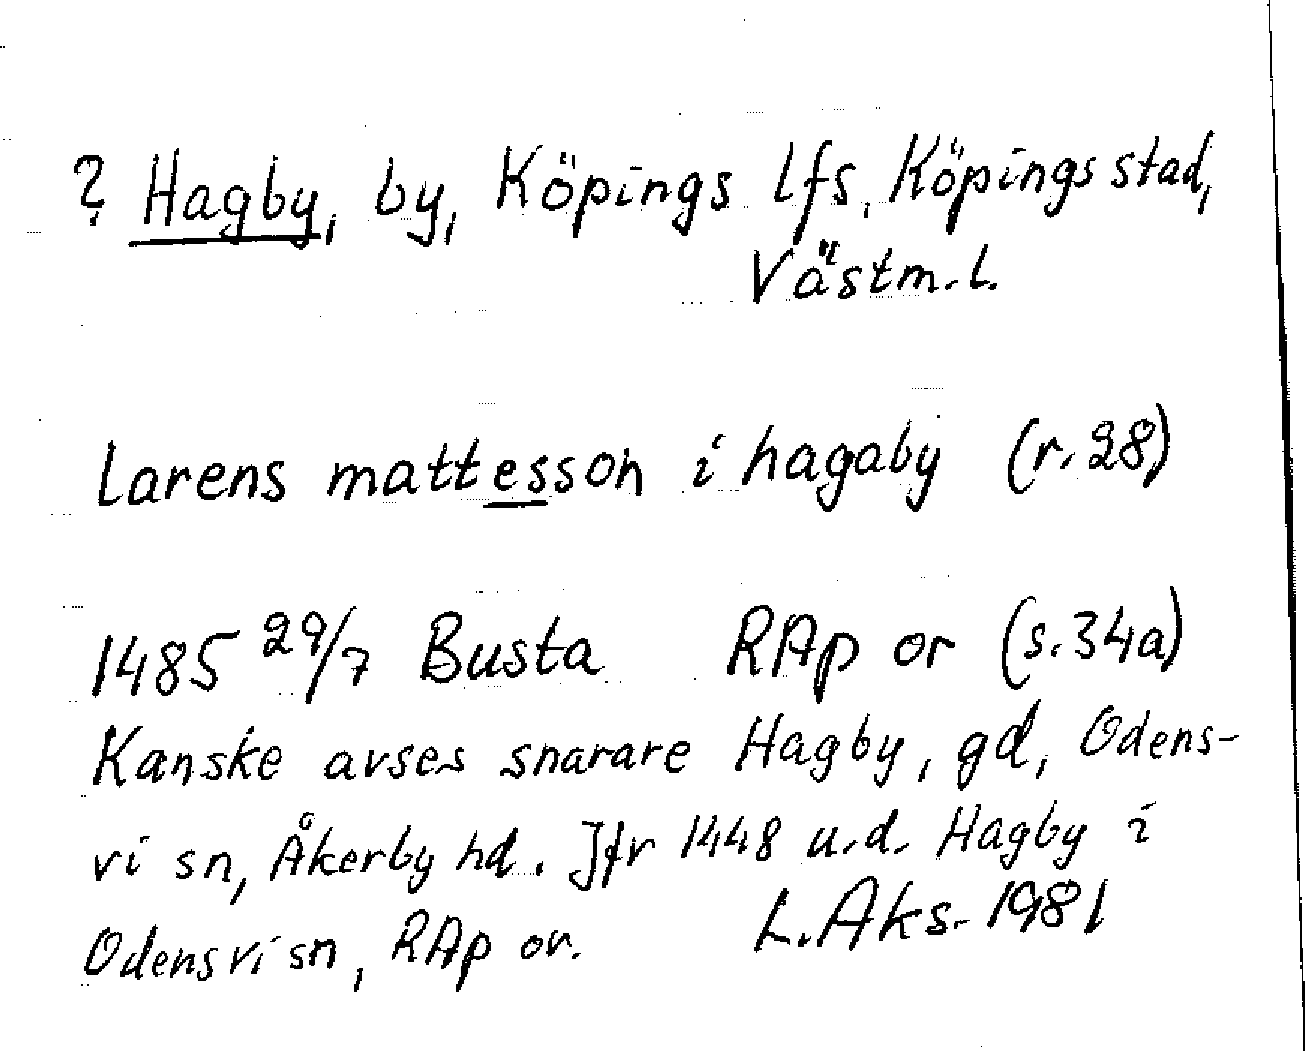 ? Hagby, by, Köpings lfs, Köpings stad,
Västm. l.
Larens mattesson i hagaby (r. 28)
1485 29/7 Busta RAp or (s. 34a)
Kanske avses snarare Hagby, gd, Odens-
vi sn, Åkerby hd. Jfr 1448 u.d. Hagby i
Odensvi sn, RAp or. L. Aks. 1981